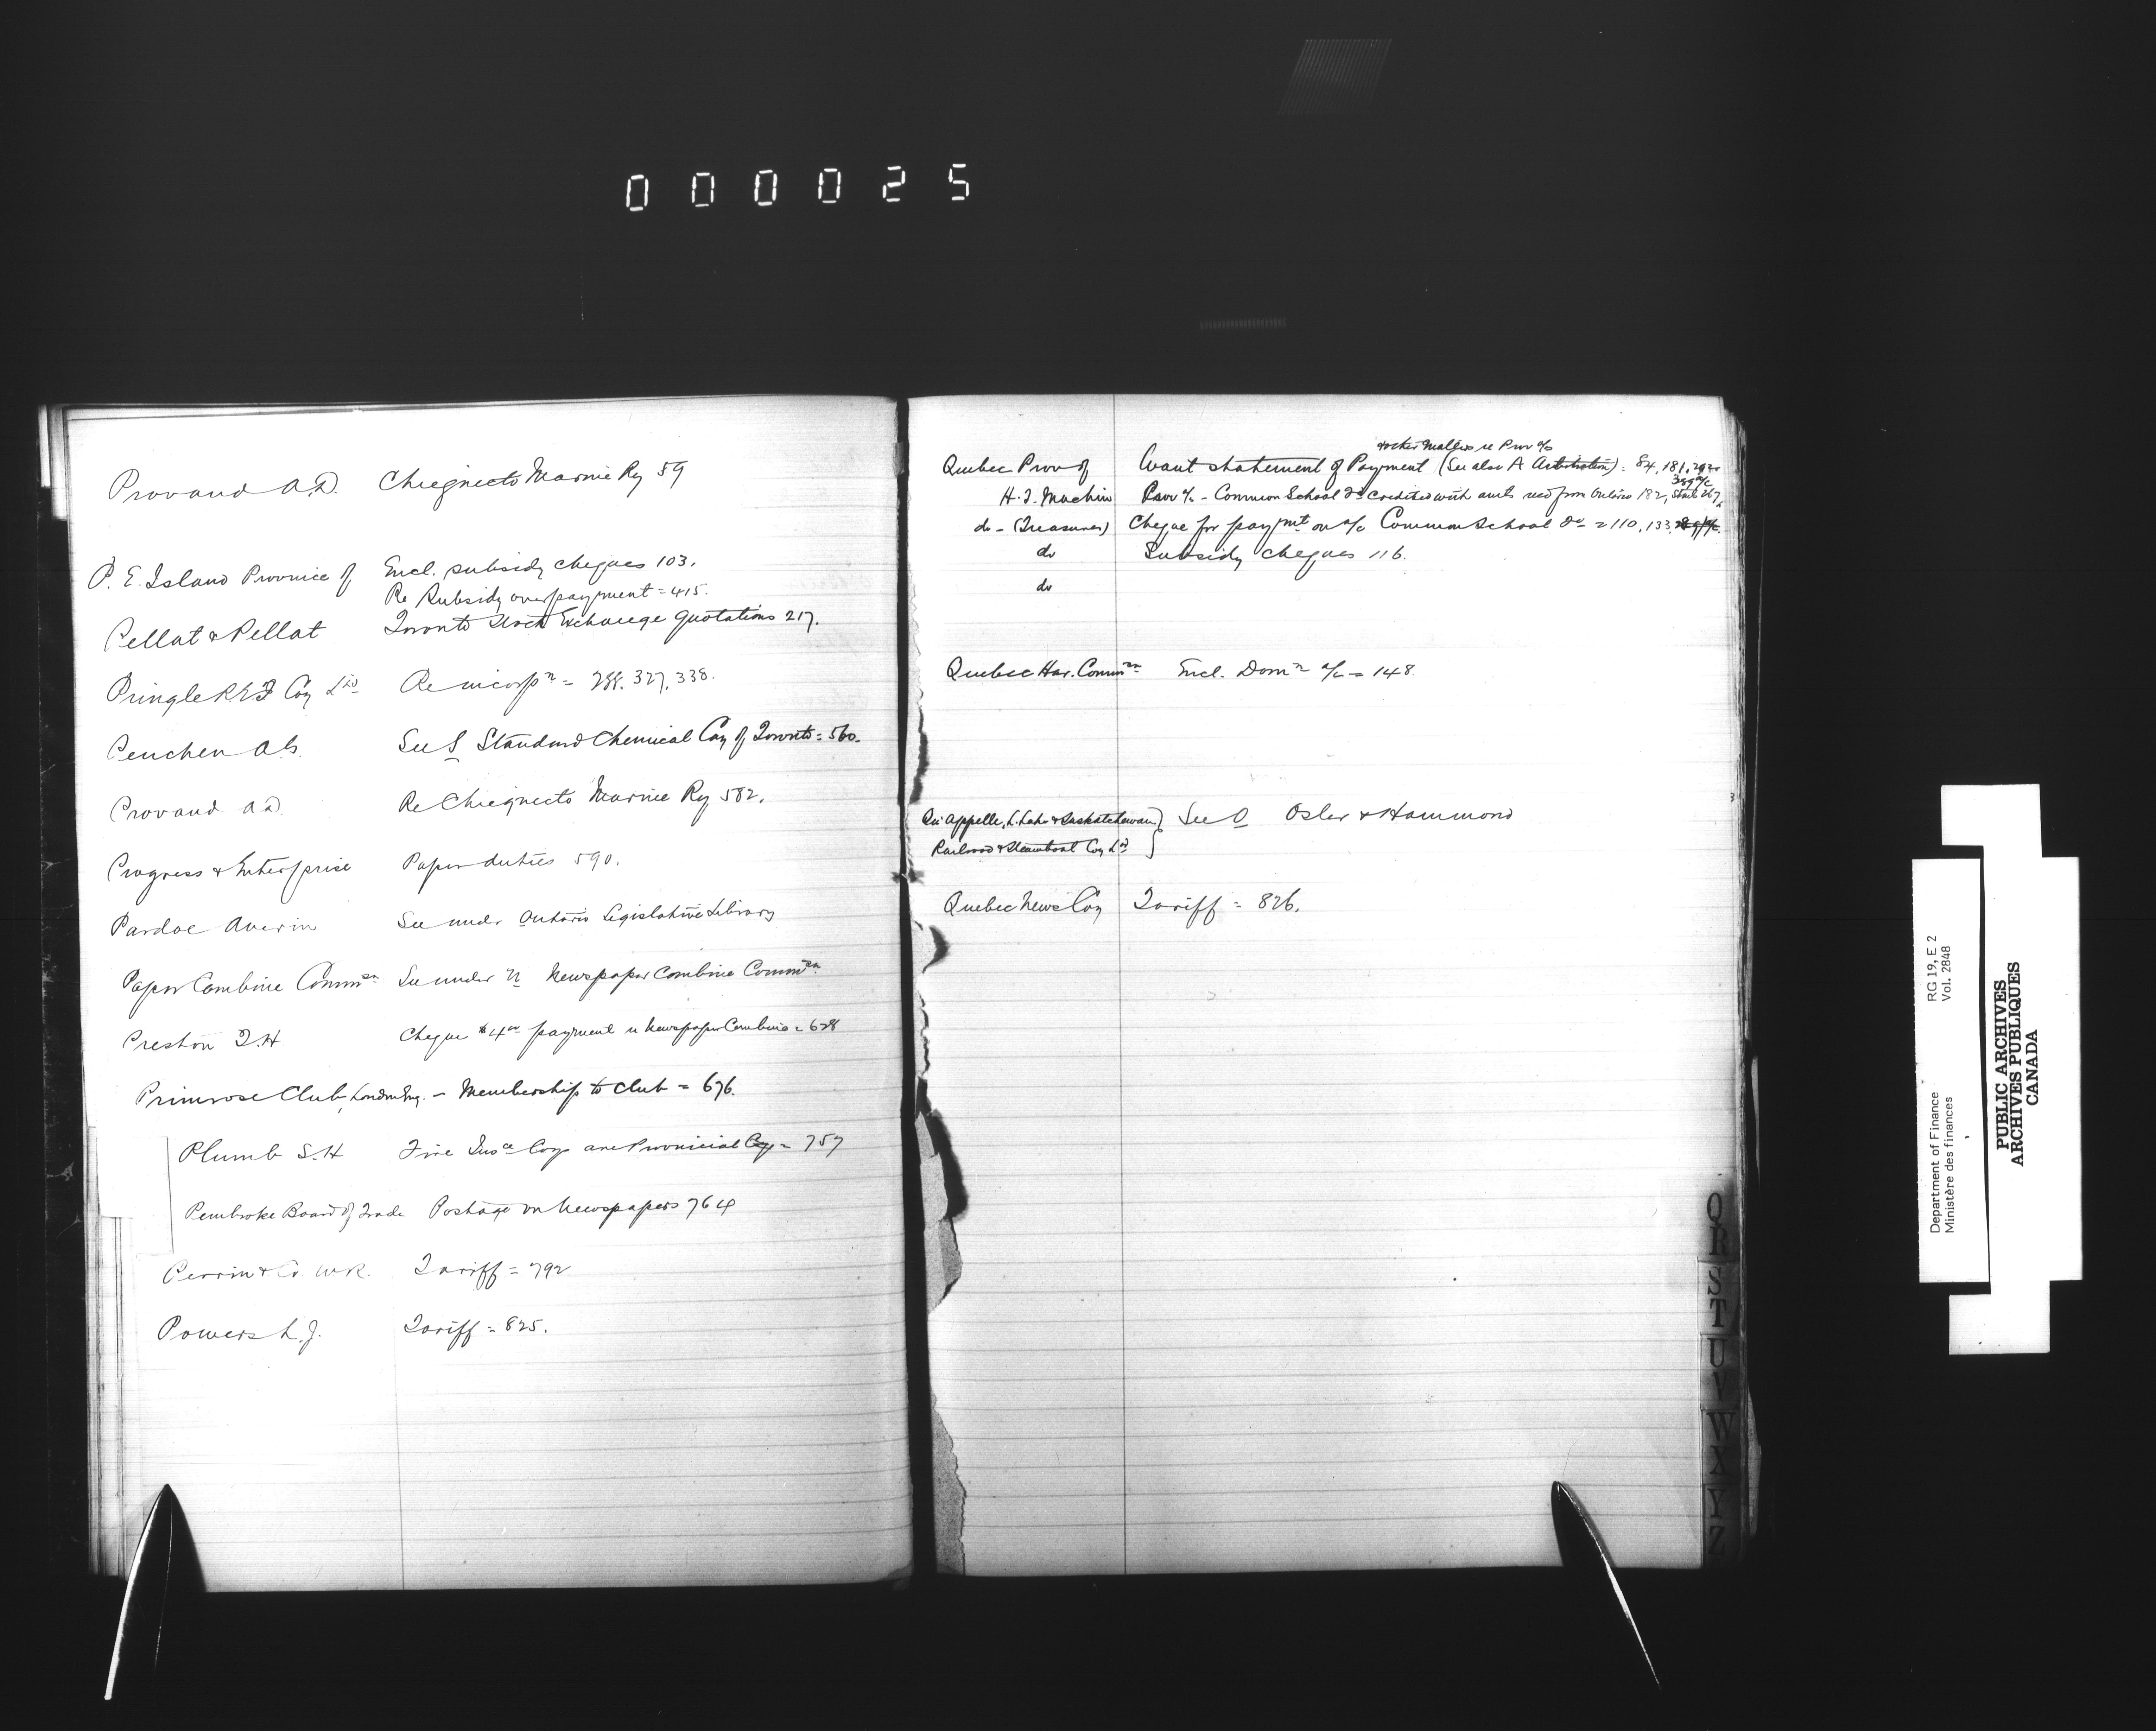 000025
Provand A.D. Chiegnecto Marine Ry 59
P. E. Island Province of Encl. subsidy cheques 103.
Re Subsidy overpayment = 415.
Pellat & Pellat Toronto Stock Exchange Quotations 217.
Pringle R.E.T Coy Ltd Re incorpn = 288. 327. 338.
Peuchen A.G. See S Standard Chemical Coy of Toronto = 560.
Provand A D. Re Chiegnecto Marine Ry 582.
Progress & Enterprise Paper duties 590.
Pardoe Averin See under Ontario Legislative Library
Paper Combine Commsn See under N Newspaper Combine Commsn
Preston T.H Cheque $4.00 payment re Newspaper Combine = 628
Primrose Club, London Eng. - Membership to Club = 676.
Plumb S.H Fire Insce Coy are Provincial Coy = 757
Pembroke Board of Trade Postage on Newspapers 764
Perrin & Co W.R. Tariff = 792
Powers L.J. Tariff = 825.
& other matters re Prov a/c
Quebec Prov of Want statement of Payment (See also A Arbitration) = 84, 181, 292
389
H.T. Machin Prov a/c - Common School Fd credited with amts recd from Ontario 182, 267
do - (Treasurer) Cheque for paymt on a/c Common School Fd = 110, 133
do Subsidy cheques 116.
do
Quebec Har. Commrn Encl. Domn a/c = 148.
Qu'Appelle, L. Lake & Saskatchewan See O Osler & Hammond
Railroad & Steamboat Coy Ld
Quebec News Coy Tariff = 826.
Q
R
S
T
U
V
W
X
Y
Z
Department of Finance RG 19, E 2
Ministère des finances Vol. 2848
PUBLIC ARCHIVES
ARCHIVES PUBLIQUES
CANADA